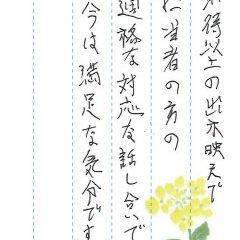 以上の出来映えで
担当者の方の
適格な対応な話し合いで
今は満足な気分です